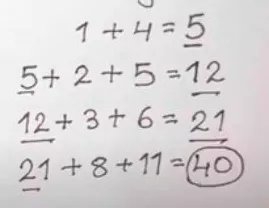 1 + 4 = 5
5 + 2 + 5 = 12
12 + 3 + 6 = 21
21 + 8 + 11 = 40